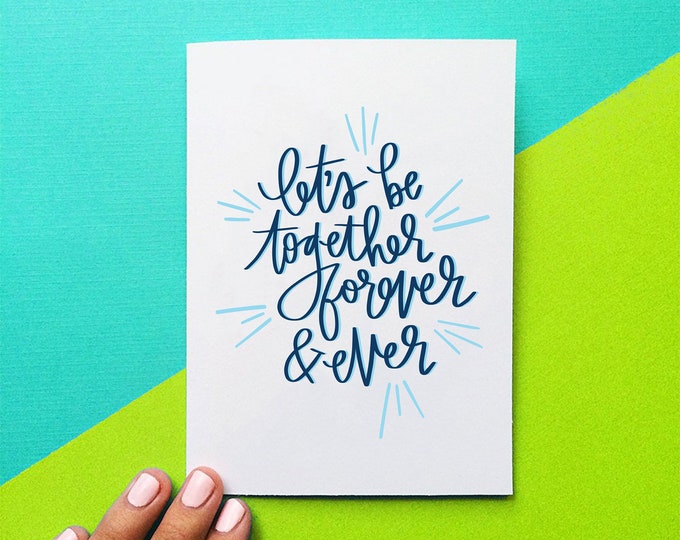 let's be
together
forever
& ever